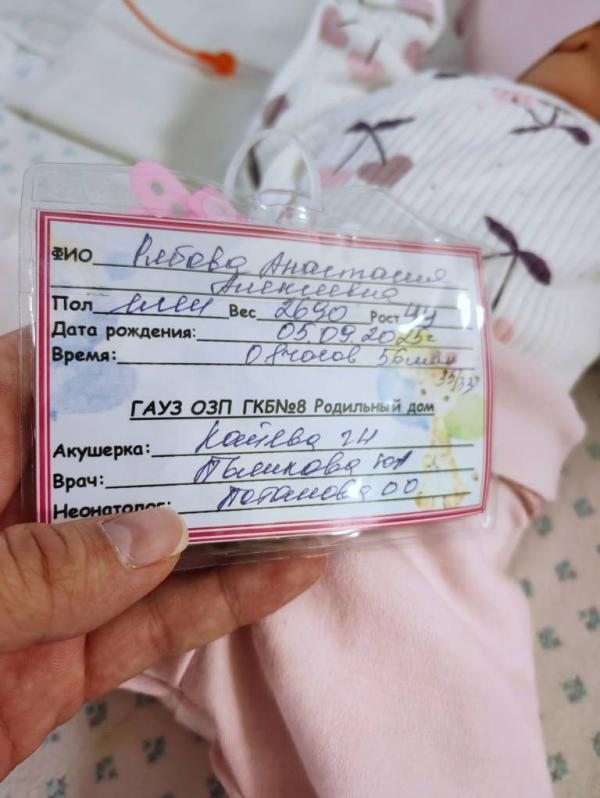 ФИО Рябова Анастасия
Алексеевна
Пол жен Вес 2690 Рост 49
Дата рождения: 05.09.2025г
Время: 08часов 56мин
35/33
ГАУЗ ОЗП ГКБ№8 Родильный дом
Акушерка: ГН
Врач: ЮА
Неонатолог: Потапова ОО